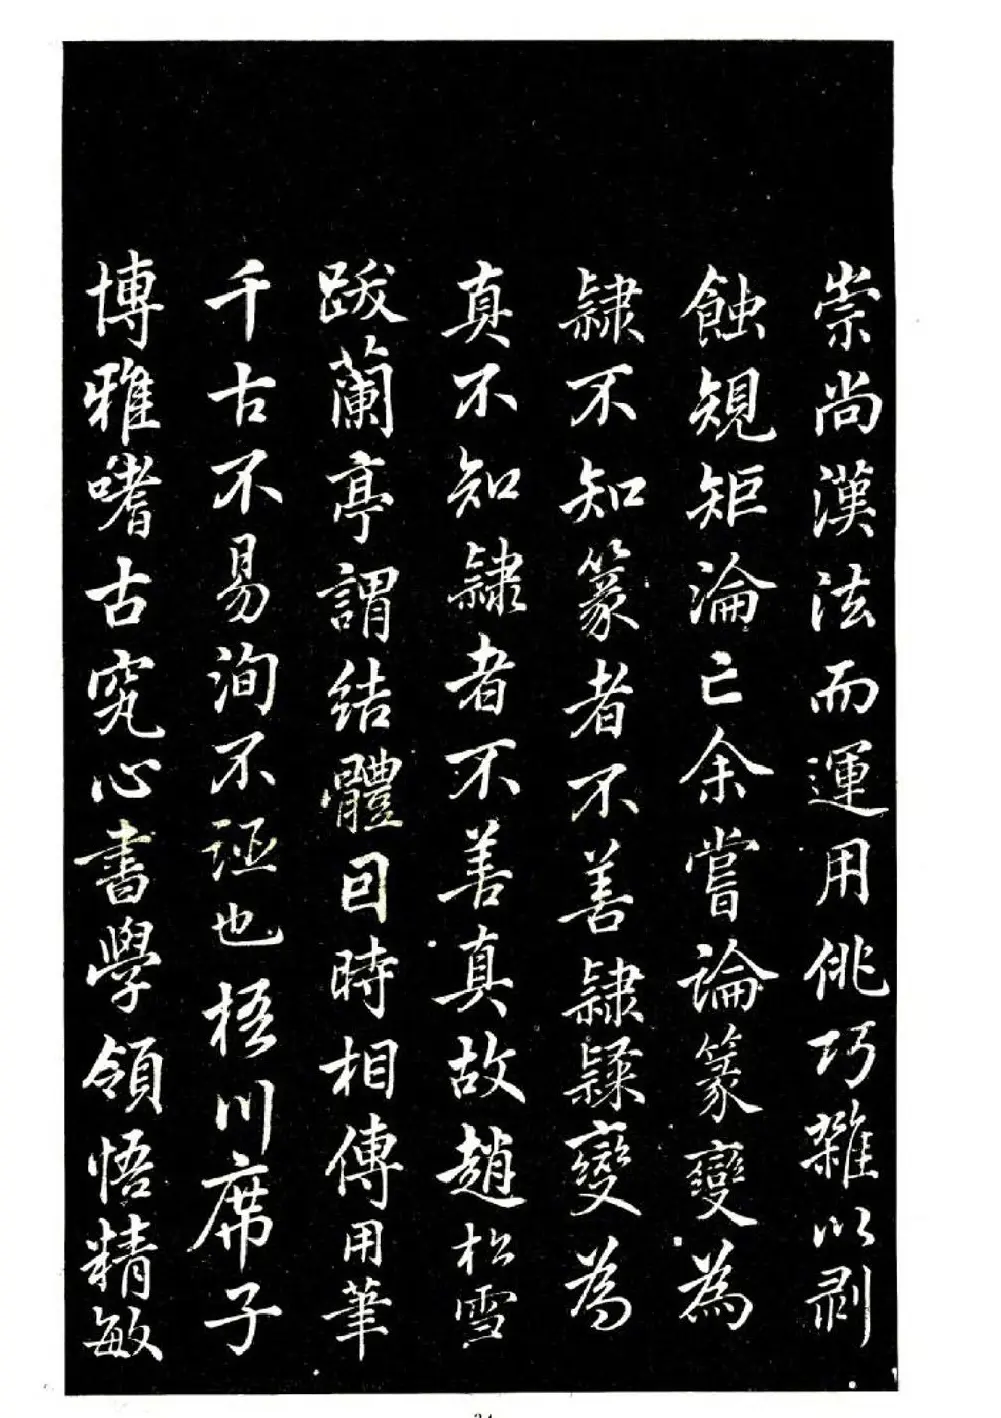 崇尚漢法而運用佻巧雜以剥
蝕規矩淪亡余嘗論篆變為
隸不知篆者不善隸隸變為
真不知隸者不善真故趙松雪
跋蘭亭謂結體因時相傳用筆
千古不易洵不誣也梧川席子
博雅嗜古究心書學領悟精敏